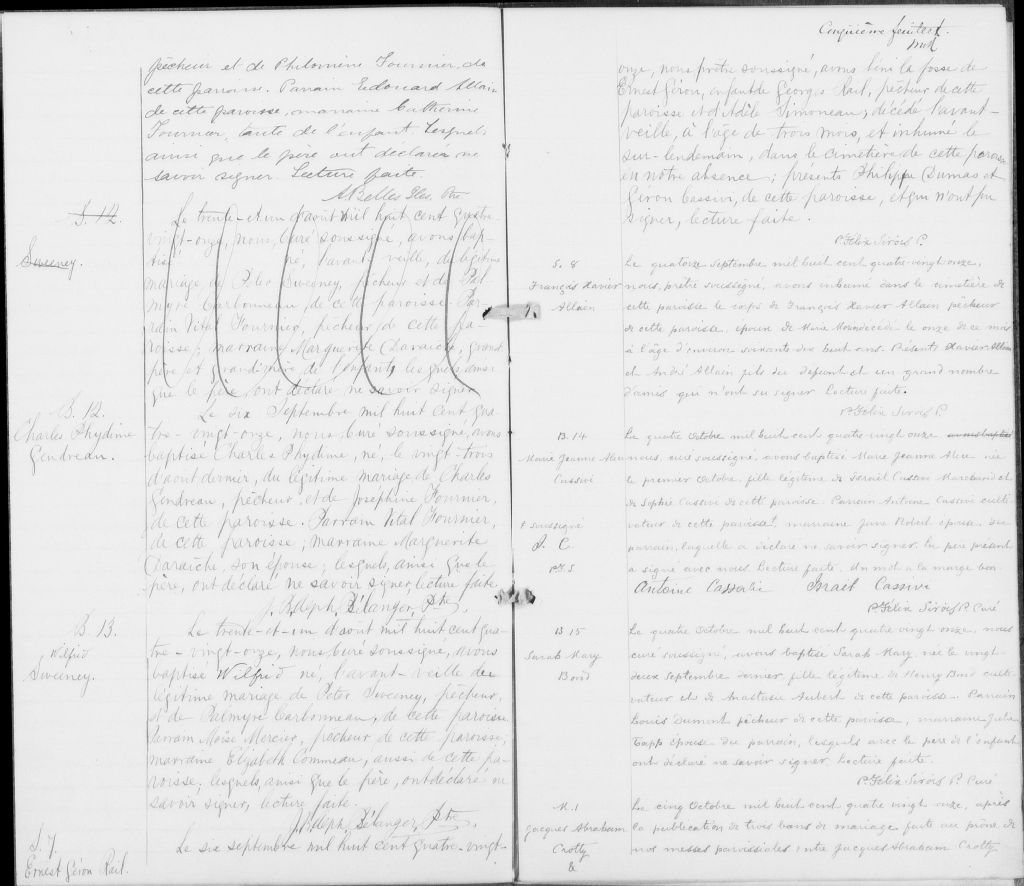 pêcheur et de Philomène Fournier, de
cette paroisse. Parrain Edouard Allain
de cette paroisse, marraine Catherine
Fournier, tante de l'enfant, lesquels
ainsi que le père ont déclaré ne
savoir signer. Lecture faite.
S. 12.
Sweeney.
Le trente-et-un d'août mil huit cent quatre
vingt-onze, nous, curé soussigné, avons bap-
tisé né, l'avant-veille, du légitime
mariage de Peter Sweeney, pêcheur et de Pal-
myre Carbonneau, de cette paroisse. Par-
rain Vital Fournier, pêcheur, de cette pa-
roisse; marraine Marguerite Claraiche, grand
père et grand'mère de l'enfant, lesquels ainsi
que le père, ont déclaré ne savoir signer
B. 12.
Charles Phydime
Gendreau.
Le six Septembre mil huit cent qua-
tre-vingt-onze, nous, curé soussigné, avons
baptisé Charles Phydime, né, le vingt-trois
d'août dernier, du légitime mariage de Charles
Gendreau, pêcheur, et de Joséphine Fournier,
de cette paroisse. Parrain Vital Fournier,
de cette paroisse; marraine Marguerite
Claraiche, son épouse; lesquels, ainsi que le
père, ont déclaré ne savoir signer, lecture faite.
J. Adolph. Bélanger, Ptre
B. 13.
Wilfrid
Sweeney.
Le trente-et-un d'août mil huit cent qua-
tre-vingt-onze, nous, curé soussigné, avons
baptisé Wilfrid né, l'avant-veille du
légitime mariage de Peter Sweeney, pêcheur,
et de Palmyre Carbonneau, de cette paroisse.
Parrain Moïse Mercier, pêcheur de cette paroisse;
marraine Elizabeth Commeau, aussi de cette pa-
roisse; lesquels, ainsi que le père, ont déclaré ne
savoir signer, lecture faite.
J. Adolph. Bélanger, Ptre
S. 7.
Ernest Géron Rail.
Le six septembre mil huit cent quatre-vingt-
Cinquième feuillet.
onze, nous, prêtre soussigné, avons béni la fosse de
Ernest Géron, enfant de George Rail, pêcheur de cette
paroisse et d'Adèle Simoneau, décédé l'avant-
veille, à l'âge de trois mois, et inhumé le
sur-lendemain, dans le cimetière de cette paroisse
en notre absence; présents Philippe Dumas et
Géron Cassivi, de cette paroisse, et qui n'ont pu
signer, lecture faite.
P. Félix Sirois P.
S. 8
François Xavier
Allain
Le quatorze Septembre mil huit cent quatre-vingt-onze,
nous, prêtre soussigné, avons inhumé dans le cimetière de
cette paroisse le corps de François Xavier Allain pêcheur
de cette paroisse, époux de Marie décédé le onze de ce mois
à l'âge d'environ soixante dix huit ans. Présents Xavier Allain
et André Allain fils du défunt et un grand nombre
d'amis qui n'ont su signer. Lecture faite.
P. Félix Sirois P.
B. 14
Marie Jeanne Alice
Cassivi
Le quatre Octobre mil huit cent quatre-vingt onze avons baptisé
nous, curé soussigné, avons baptisé Marie Jeanne Alice née
le premier Octobre, fille légitime de Israël Cassivi Marchand et
de Sophie Cassivi de cette paroisse. Parrain Antoine Cassivi culti-
vateur de cette paroisse, marraine Jane Robert épouse du
parrain, laquelle a déclaré ne savoir signer. Le père présent
a signé avec nous. Lecture faite. Un mot à la marge bon.
+ soussigné
P. F. S
Antoine Cassivi Israel Cassivi
P. Félix Sirois P. Curé
B 15
Sarah Mary
Bond
Le quatre Octobre mil huit cent quatre vingt onze, nous
curé soussigné, avons baptisé Sarah Mary, née le vingt-
deux Septembre dernier, fille légitime de Henry Bond culti-
vateur et de Anastasie Aubert de cette paroisse. Parrain
Louis Dumont pêcheur de cette paroisse, marraine Julie
Tapp épouse du parrain, lesquels avec le père de l'enfant
ont déclaré ne savoir signer. Lecture faite.
P. Félix Sirois P. Curé
M. 1
Jacques Abraham
Crotty
&
Le cinq Octobre mil huit cent quatre vingt onze, après
la publication de trois bans de mariage faite au prône de
nos messes paroissiales entre Jacques Abraham Crotty